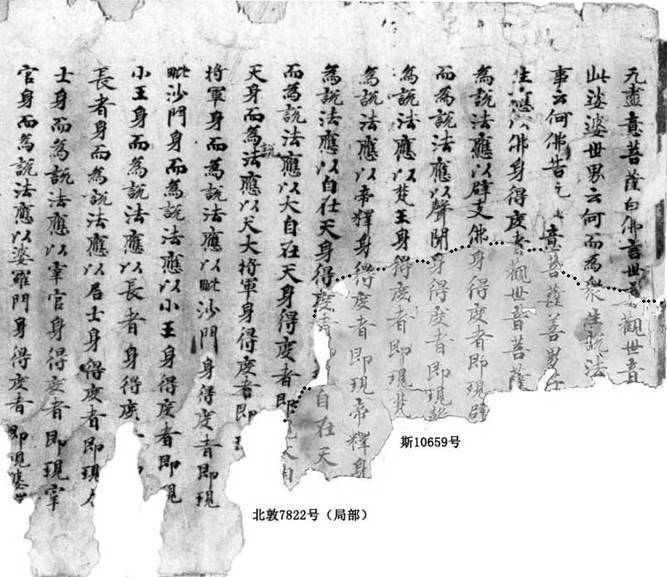 无盡意菩薩白佛言世尊觀世音
此娑婆世界云何而為衆生說法
事云何佛告无意菩薩善男子
生應以佛身得度者觀世音菩薩
為說法應以辟支佛身得度者即現辟
而為說法應以聲聞身得度者即現聲
為說法應以梵王身得度者即現梵
為說法應以帝釋身得度者即現帝釋身
為說法應以自在天身得度者自在天
而為說法應以大自在天身得度者即現大自
天身而為說法應以天大將軍身得度者即
將軍身而為說法應以毗沙門身得度者即現
毗沙門身而為說法應以小王身得度者即現
小王身而為說法應以長者身得度
長者身而為說法應以居士身得度者即現
士身而為說法應以宰官身得度者即現宰
官身而為說法應以婆羅門身得度者即現婆
斯10659号
北敦7822号（局部）